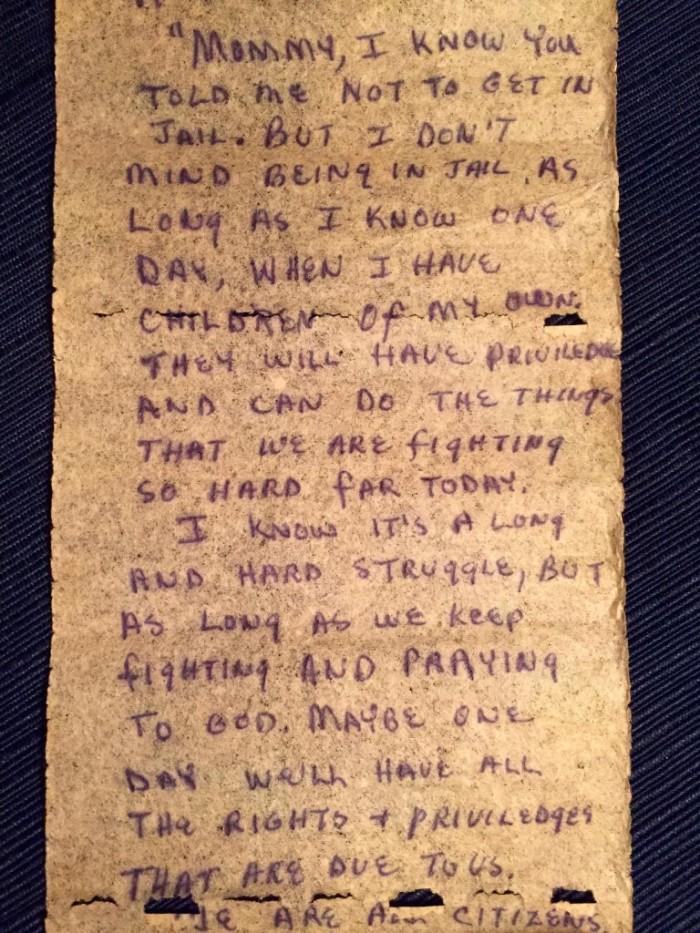 "MOMMY, I KNOW YOU
TOLD ME NOT TO GET IN
JAIL. BUT I DON'T
MIND BEING IN JAIL, AS
LONG AS I KNOW ONE
DAY, WHEN I HAVE
CHILDREN OF MY OWN.
THEY WILL HAVE PRIVILEDGE
AND CAN DO THE THINGS
THAT WE ARE FIGHTING
SO HARD FAR TODAY.
I KNOW IT'S A LONG
AND HARD STRUGGLE, BUT
AS LONG AS WE KEEP
FIGHTING AND PRAYING
TO GOD. MAYBE ONE
DAY WE'LL HAVE ALL
THE RIGHTS + PRIVILEDGES
THAT ARE DUE TO US.
ARE CITIZENS